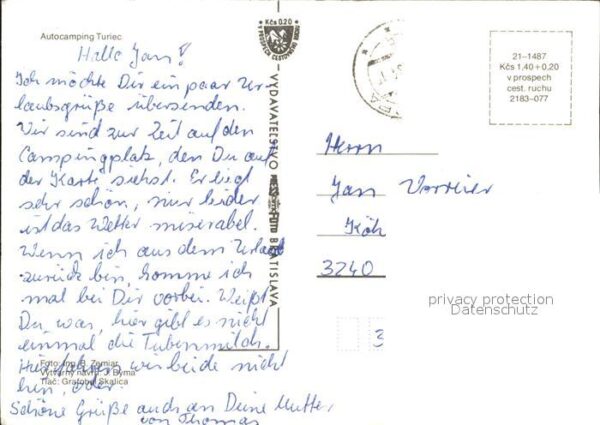 Autocamping Turiec
Hallo Jan!
Ich möchte Dir ein paar Ur-
laubsgrüße übersenden.
Wir sind zur Zeit auf den
Campingplatz, den Du auf
der Karte siehst. Er liegt
sehr schön, nur leider
ist das Wetter miserabel.
Wenn ich aus dem Urlaub
zurück bin, komme ich
mal bei Dir vorbei. Weißt
Du, was, hier gibt es nicht
einmal die Tubenmilch.
Hier fahren wir beide nicht
hin, oder.
Schöne Grüße auch an Deine Mutter
von Thomas
Foto: Ing. B. Zemiar
Výtvarný návrh: J. Býma
Tlač: Grafobal Skalica
Kčs 0.20
V PROSPECH CESTOVNÉHO RUCHU
VYDAVATEĽSTVO
BRATISLAVA
21–1487
Kčs 1,40 + 0,20
v prospech
cest. ruchu
2183–077
Herrn
Jan
3240
privacy protection
Datenschutz